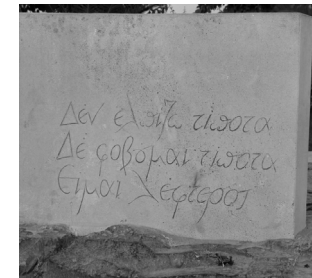 Δέν ελπίζω τίποτα
Δέ φοβομαι τίποτα
Ειμαι λέφτερος